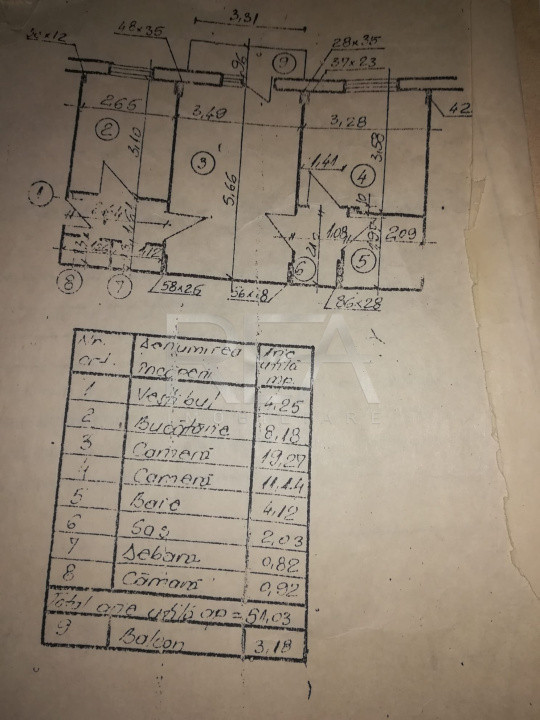 3,31
48x35
28x35
37x23
9
96
42
265
3,49
3,28
2
3,10
3
5,66
1,41
3,58
4
1
1,08
209
5
6
8
7
58x25
56x18
86x28
Nr. crt.
Denumirea încăperii
Arie utilă mp
1 Vestibul 4,25
2 Bucătărie 8,18
3 Cameră 19,27
4 Cameră 11,44
5 Baie 4,12
6 Sas 2,03
7 Debara 0,82
8 Cămară 0,92
Total arie utilă ap = 51,03
9 Balcon 3,18